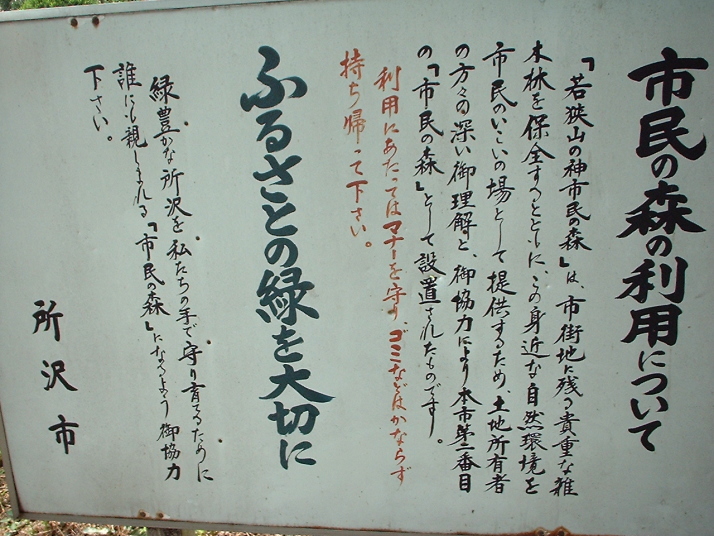 市民の森の利用について
「若狭山の神市民の森」は、市街地に残る貴重な雑
木林を保全するとともに、この身近な自然環境を
市民のいこいの場として提供するため、土地所有者
の方々の深い御理解と、御協力により本市第二番目
の「市民の森」として設置されたものです。
利用にあたってはマナーを守り、ゴミなどはかならず
持ち帰って下さい。
ふるさとの緑を大切に
緑豊かな所沢を、私たちの手で、守り育てるために
誰にも親しまれる「市民の森」になるよう御協力
下さい。
所沢市